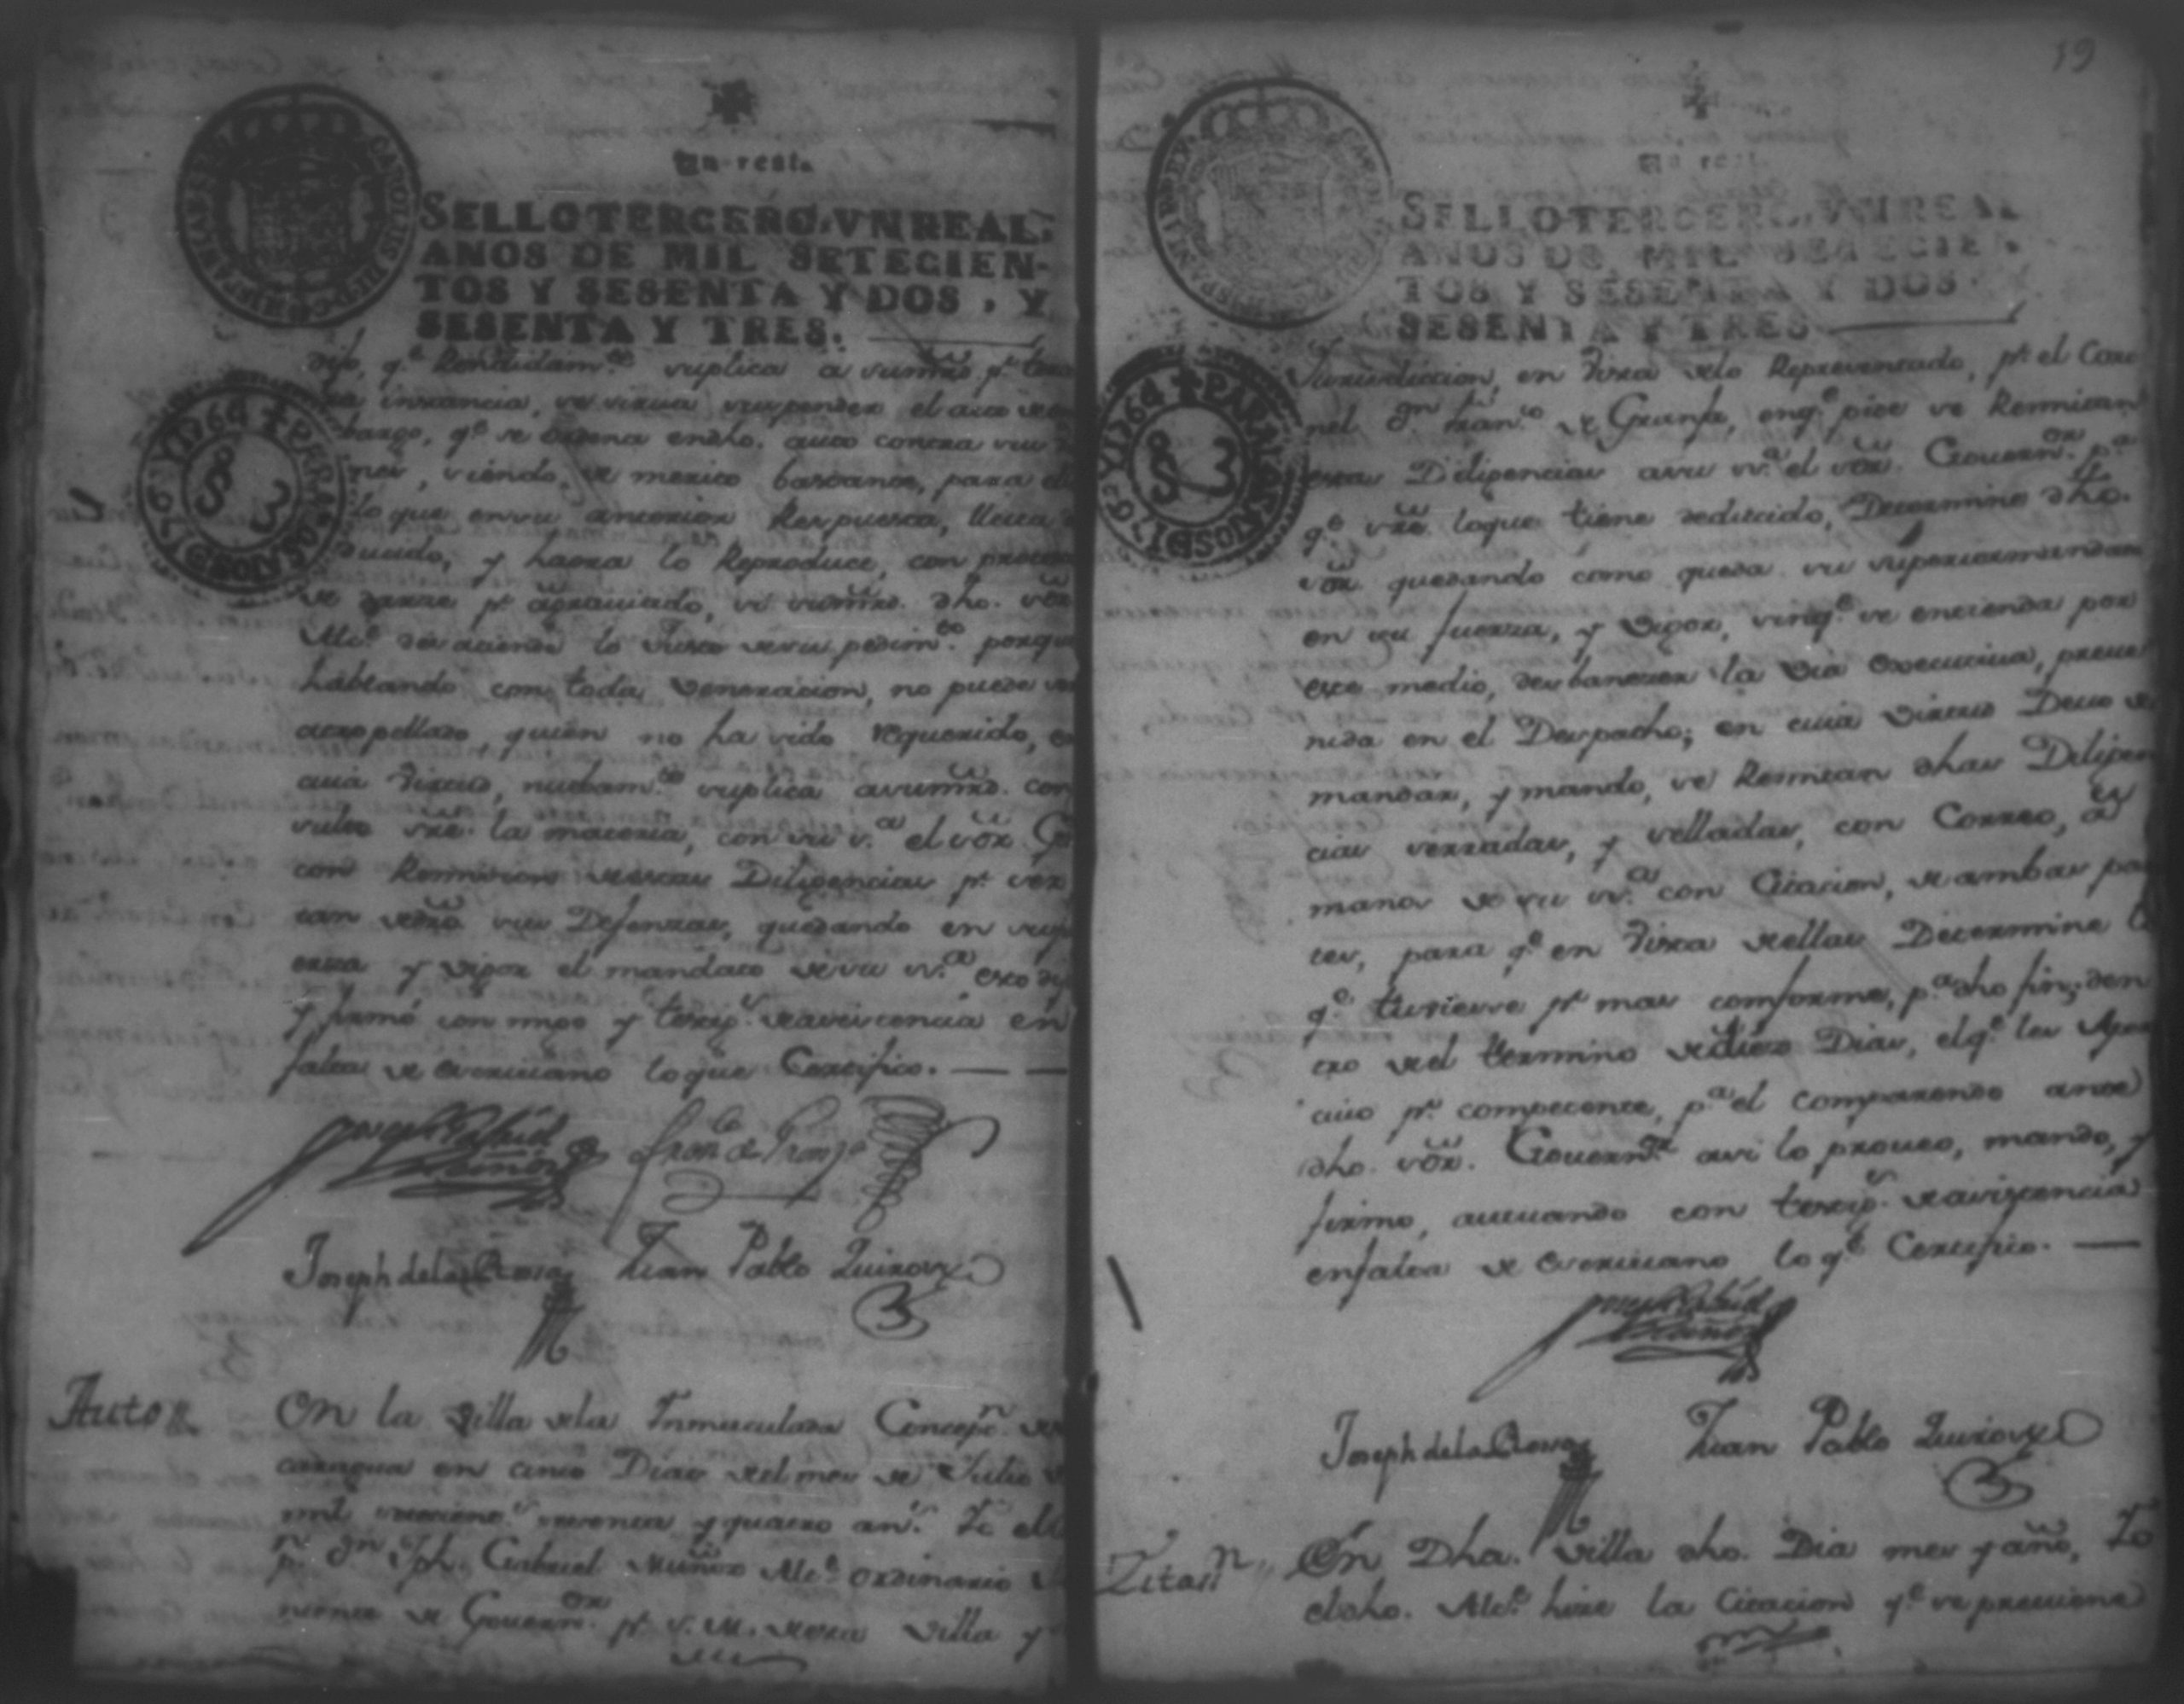 Un real.
SELLO TERCERO, VN REAL,
AÑOS DE MIL SETECIEN-
TOS Y SESENTA Y DOS, Y
SESENTA Y TRES.
CAROLUS III D G HISPANIAR REX
PARA LOS AÑOS D 1764 Y 65
dijo, q.e Rendidam.te suplica a sumrd. p.r
instancia, se sirva suspender el auto de
bargo, q.e se ordena en dho. auto contra sus
nes, siendo, de merito bastante, para el
lo que en su anterior Respuesta, lleva
ducido, y haora lo Reproduce, con
de darse p.r agraviado, si sumrd. dho. sōr
Alc.e desatiende lo Justo de su pedim.to porque
hablando con toda Veneracion, no puede
atropellado, quien no ha sido requerido, e
cuia Virtud, nuebam.te suplica a sumrd. con
sulte sre. la materia, con su s.a el sōr. Go
con Remision de estas Diligencias p.r
tan sus Defenzas, quedando en su
erza y vigor el mandato de su s.a esto dijo
y firmó con migo y testig.s de asistencia en
falta de Escrivano lo que Certifico.
Joseph Gabriel
Muñoz
Fran.co de Granja
Joseph de la Rosa
Juan Pablo Quiros
Auto
En la Villa de la Inmaculada Concepc.n de
caragua en cinco Dias del mes de Julio d
mil setecient.s sesenta y quatro an.s Yo el
p.n Dn Jph. Gabriel Muñoz Alc.e ordinario
niente de Governōr. p.r S. M. de esta Villa y
19
Un real
SELLO TERCERO, VN REAL
AÑOS DE MIL SETECIEN
TOS Y SESENTA Y DOS
SESENTA Y TRES
PARA LOS AÑOS D 1764 Y 65
Jurisdiccion, en Vista de lo Representado, p.r el Coro
nel Dn. Fran.co de Granja, en q.e pide se Remitan
estas Diligencias a su s.a el sōr. Governōr. p.a
q.e sre. lo que tiene deducido, Determine dho.
sōr. quedando como queda su superior mandato
en su fuerza, y Vigor, sin q.e se entienda por
este medio, desbanecer la Via Executiva, preve
nida en el Despacho; en cuia Virtud Devo de
mandar, y mando, se Remitan dhas Diligen
cias serradas, y selladas, con Correo, a
manos de su s.a con Citacion, de ambas par
tes, para q.e en Vista de ellas Determine lo
q.e tuviere p.r mas comforme, p.a dho fin, den
tro del termino de dies Dias, el q.e les Asig
cino p.r competente, p.a el comparendo ante
dho. sōr. Governōr. asi lo proveo, mando, y
firmo, autuando con testig.s de asistencia
en falta de Escrivano lo q.e Certifico.
Joseph Gabriel
Muñoz
Joseph de la Rosa
Juan Pablo Quiros
Zitas.n
En Dha. Villa dho. Dia mes y año, Yo
el dho. Alc.e hise la Citacion q.e se previene